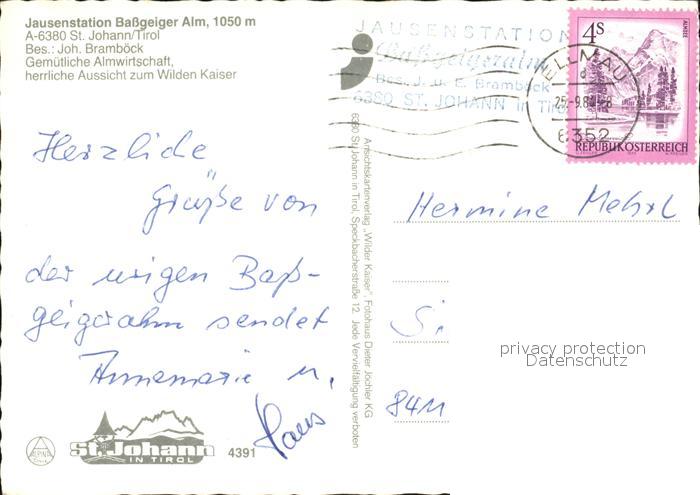 Jausenstation Baßgeiger Alm, 1050 m
A-6380 St. Johann/Tirol
Bes.: Joh. Bramböck
Gemütliche Almwirtschaft,
herrliche Aussicht zum Wilden Kaiser
JAUSENSTATION
Baßgeigeralm
Bes. J. u. E. Bramböck
6380 ST. JOHANN in Tirol
ELLMAU
6352
4 S
ALMSEE
REPUBLIK ÖSTERREICH
Herzliche
Grüße von
der urigen Baß-
geigeralm sendet
Annemarie u.
Hans
Ansichtskartenverlag „Wilder Kaiser", Fotohaus Dieter Jöchler KG
6380 St. Johann in Tirol, Speckbacherstraße 12. Jede Vervielfältigung verboten
Hermine Mehrl
S.
8411
privacy protection
Datenschutz
St. Johann
IN TIROL
4391